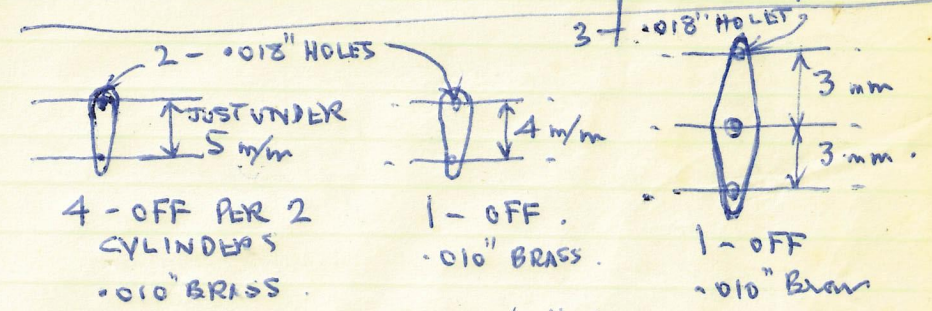 2 - .018" HOLES
JUST UNDER
5 m/m
4 - OFF PER 2
CYLINDERS
.010" BRASS
4 m/m
1 - OFF.
.010" BRASS.
3 - .018" HOLES
3 mm
3 mm.
1 - OFF
.010" Brass